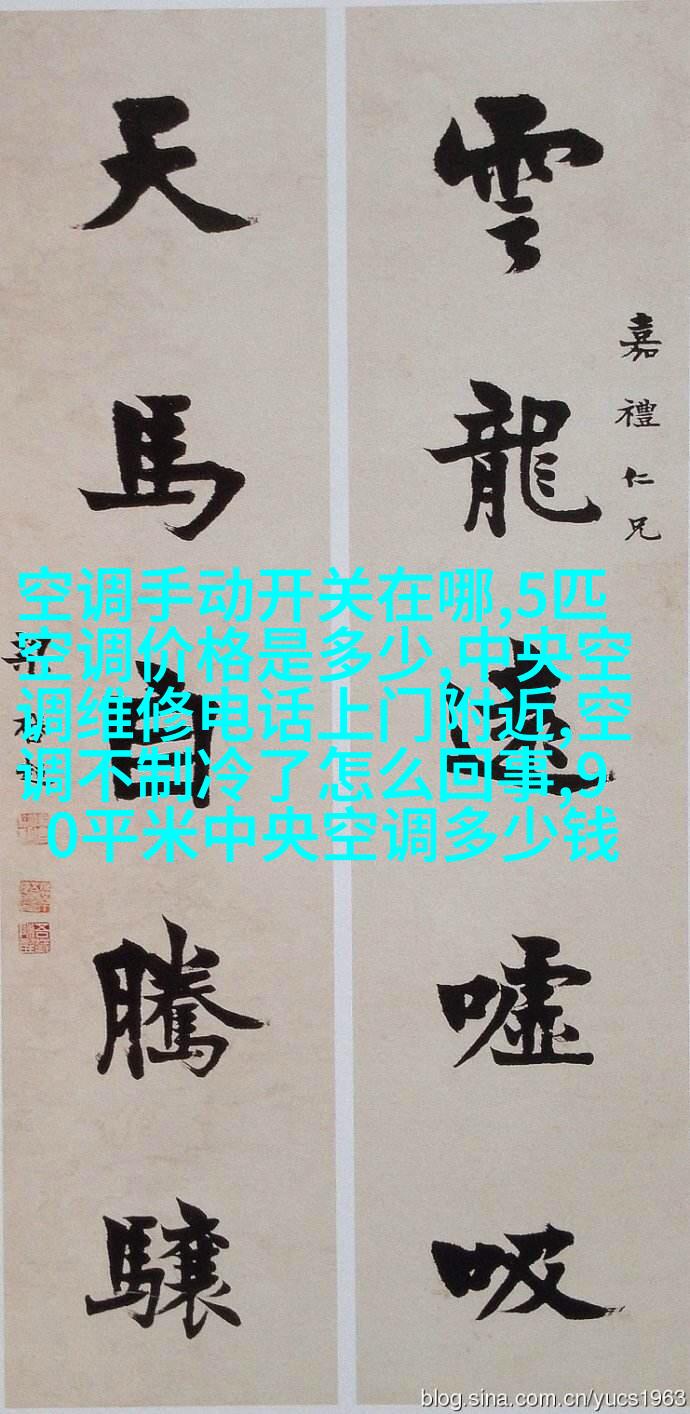 雲龍遠嘘吸
嘉禮仁兄
天馬自騰驤
空调手动开关在哪,5匹
空调价格是多少,中央空
调维修电话上门附近,空
调不制冷了怎么回事,9
0平米中央空调多少钱
blog.sina.com.cn/yucs1963